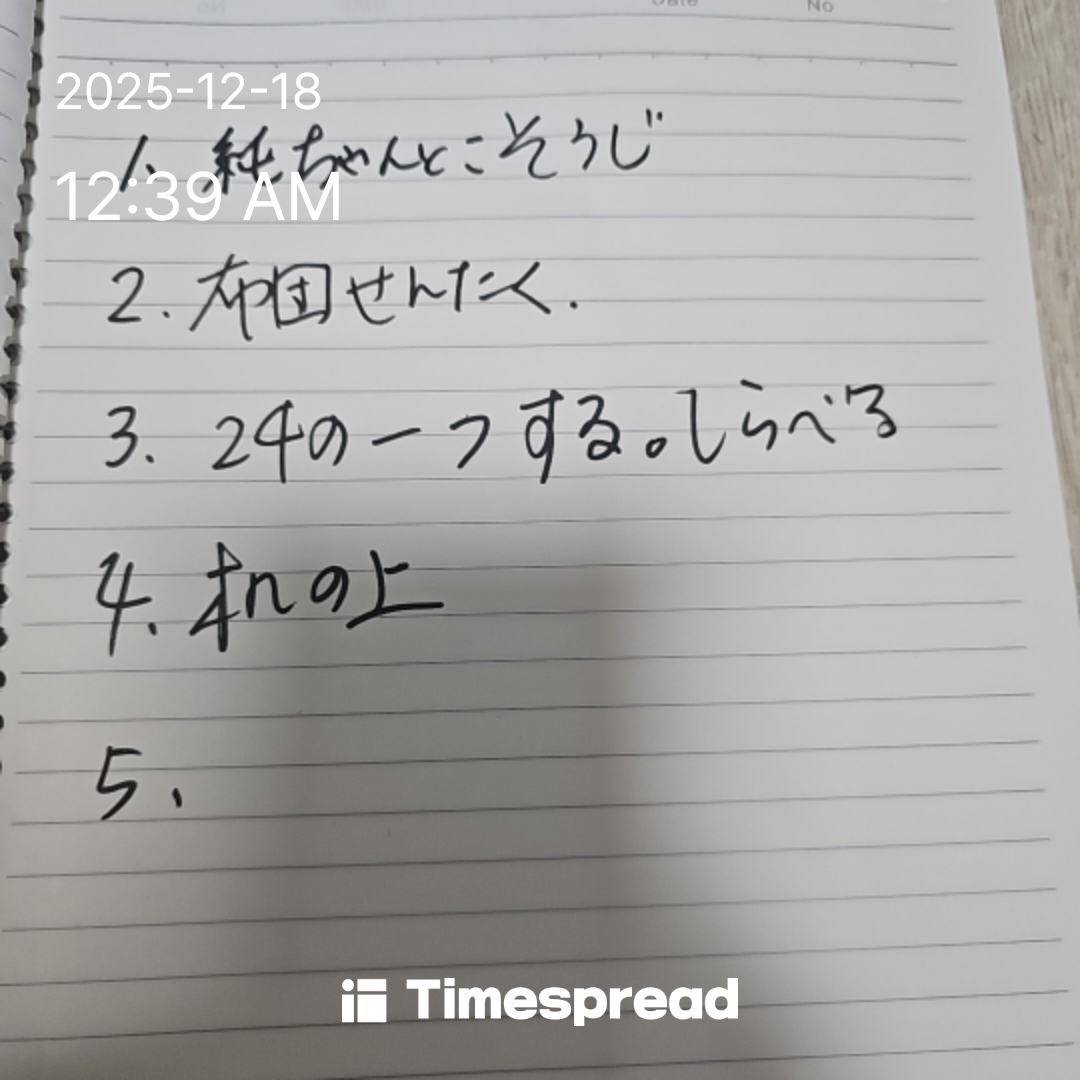 Date No
2025-12-18
1. 純ちゃんとこそうじ
12:39 AM
2. 布団せんたく.
3. 24の一つする。しらべる
4. 机の上
5.
Timespread